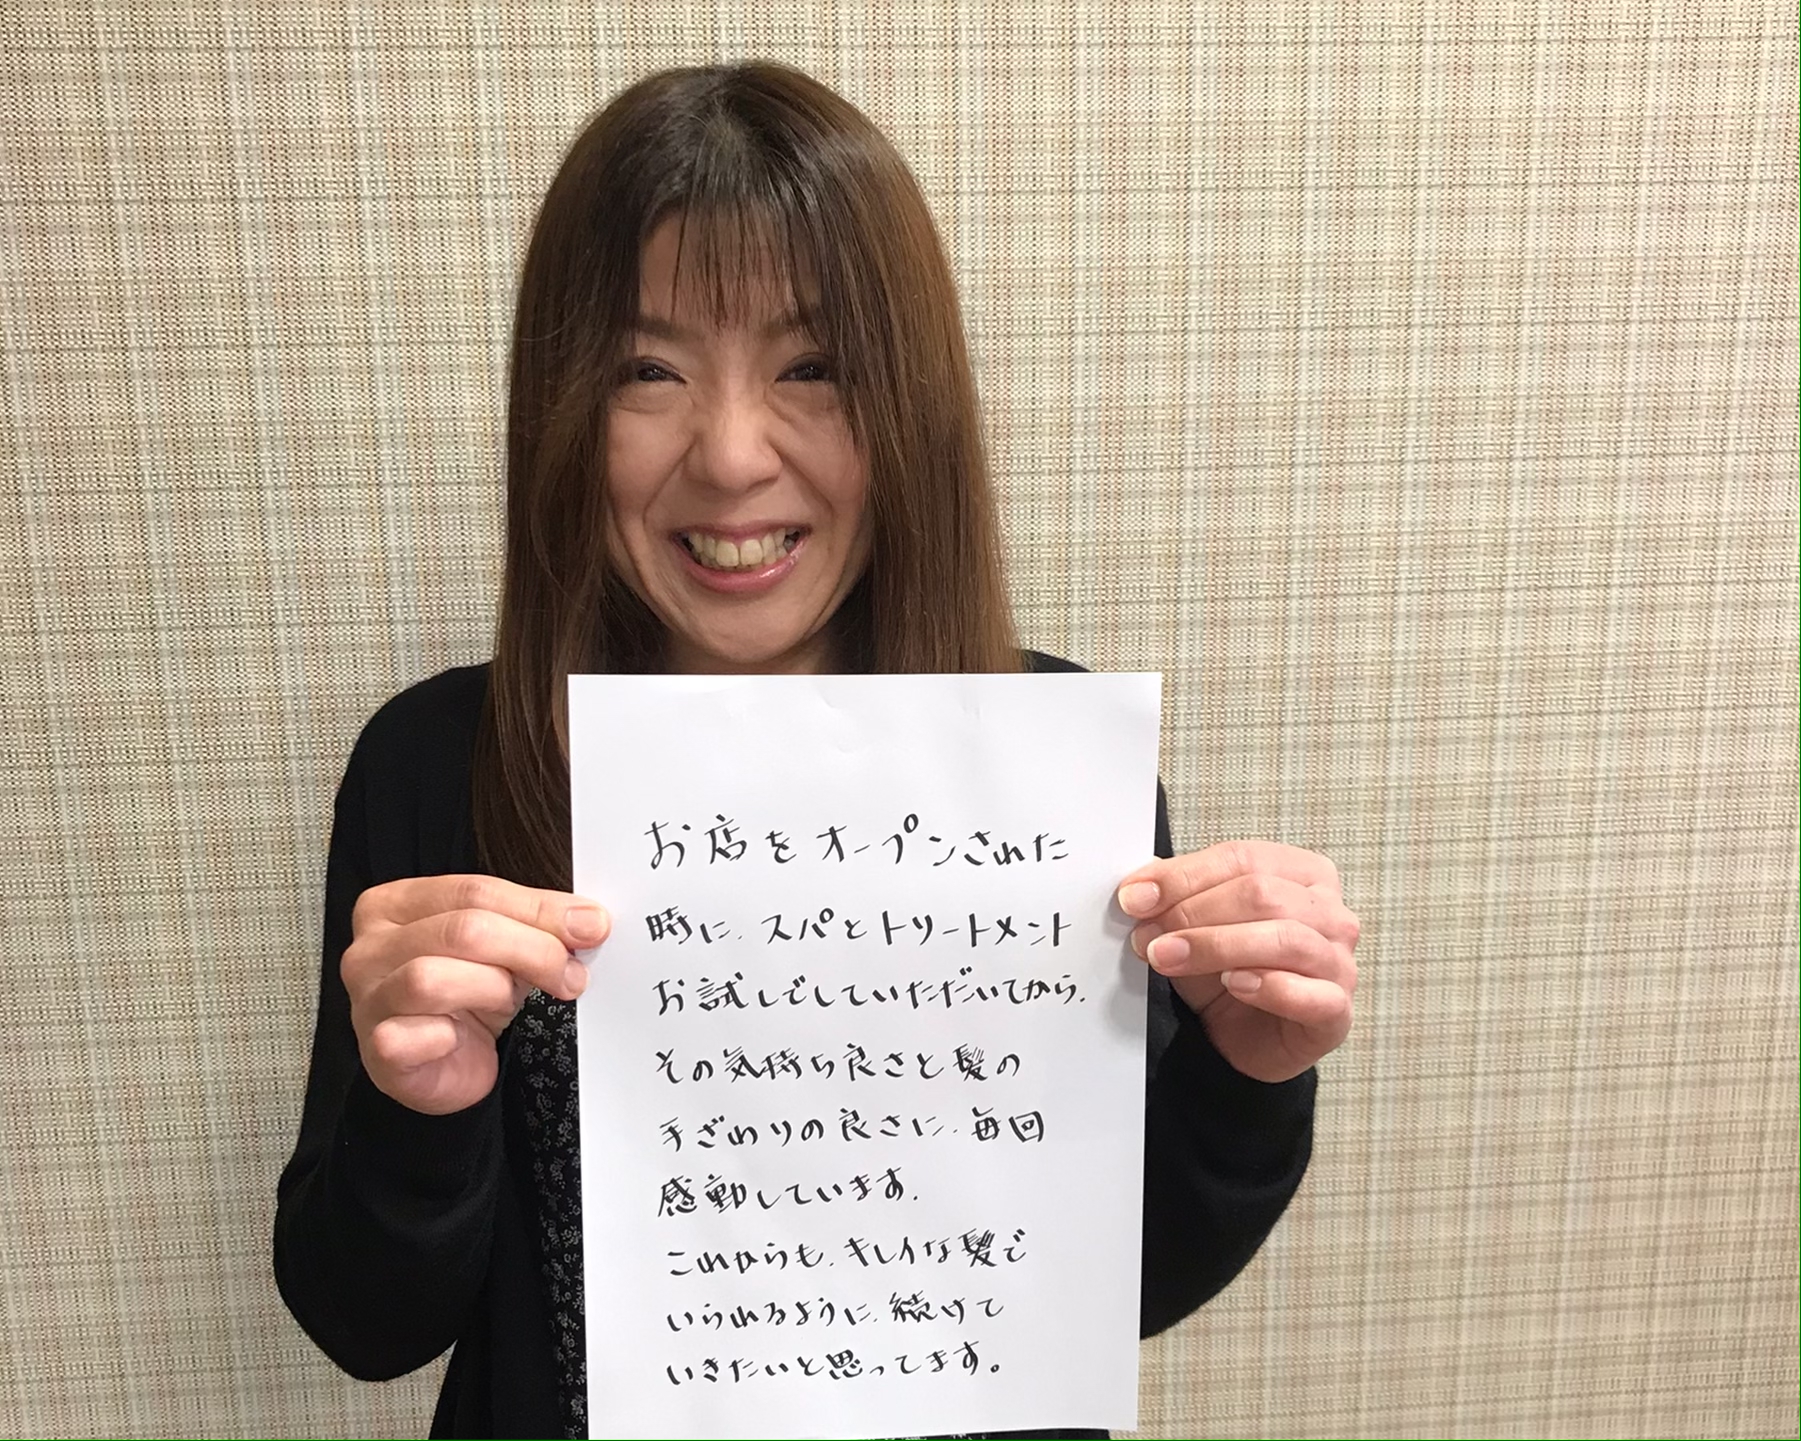 お店をオープンされた
時に、スパとトリートメント
お試しでしていただいてから、
その気持ち良さと髪の
手ざわりの良さに、毎回
感動しています。
これからも、キレイな髪で
いられるように、続けて
いきたいと思ってます。